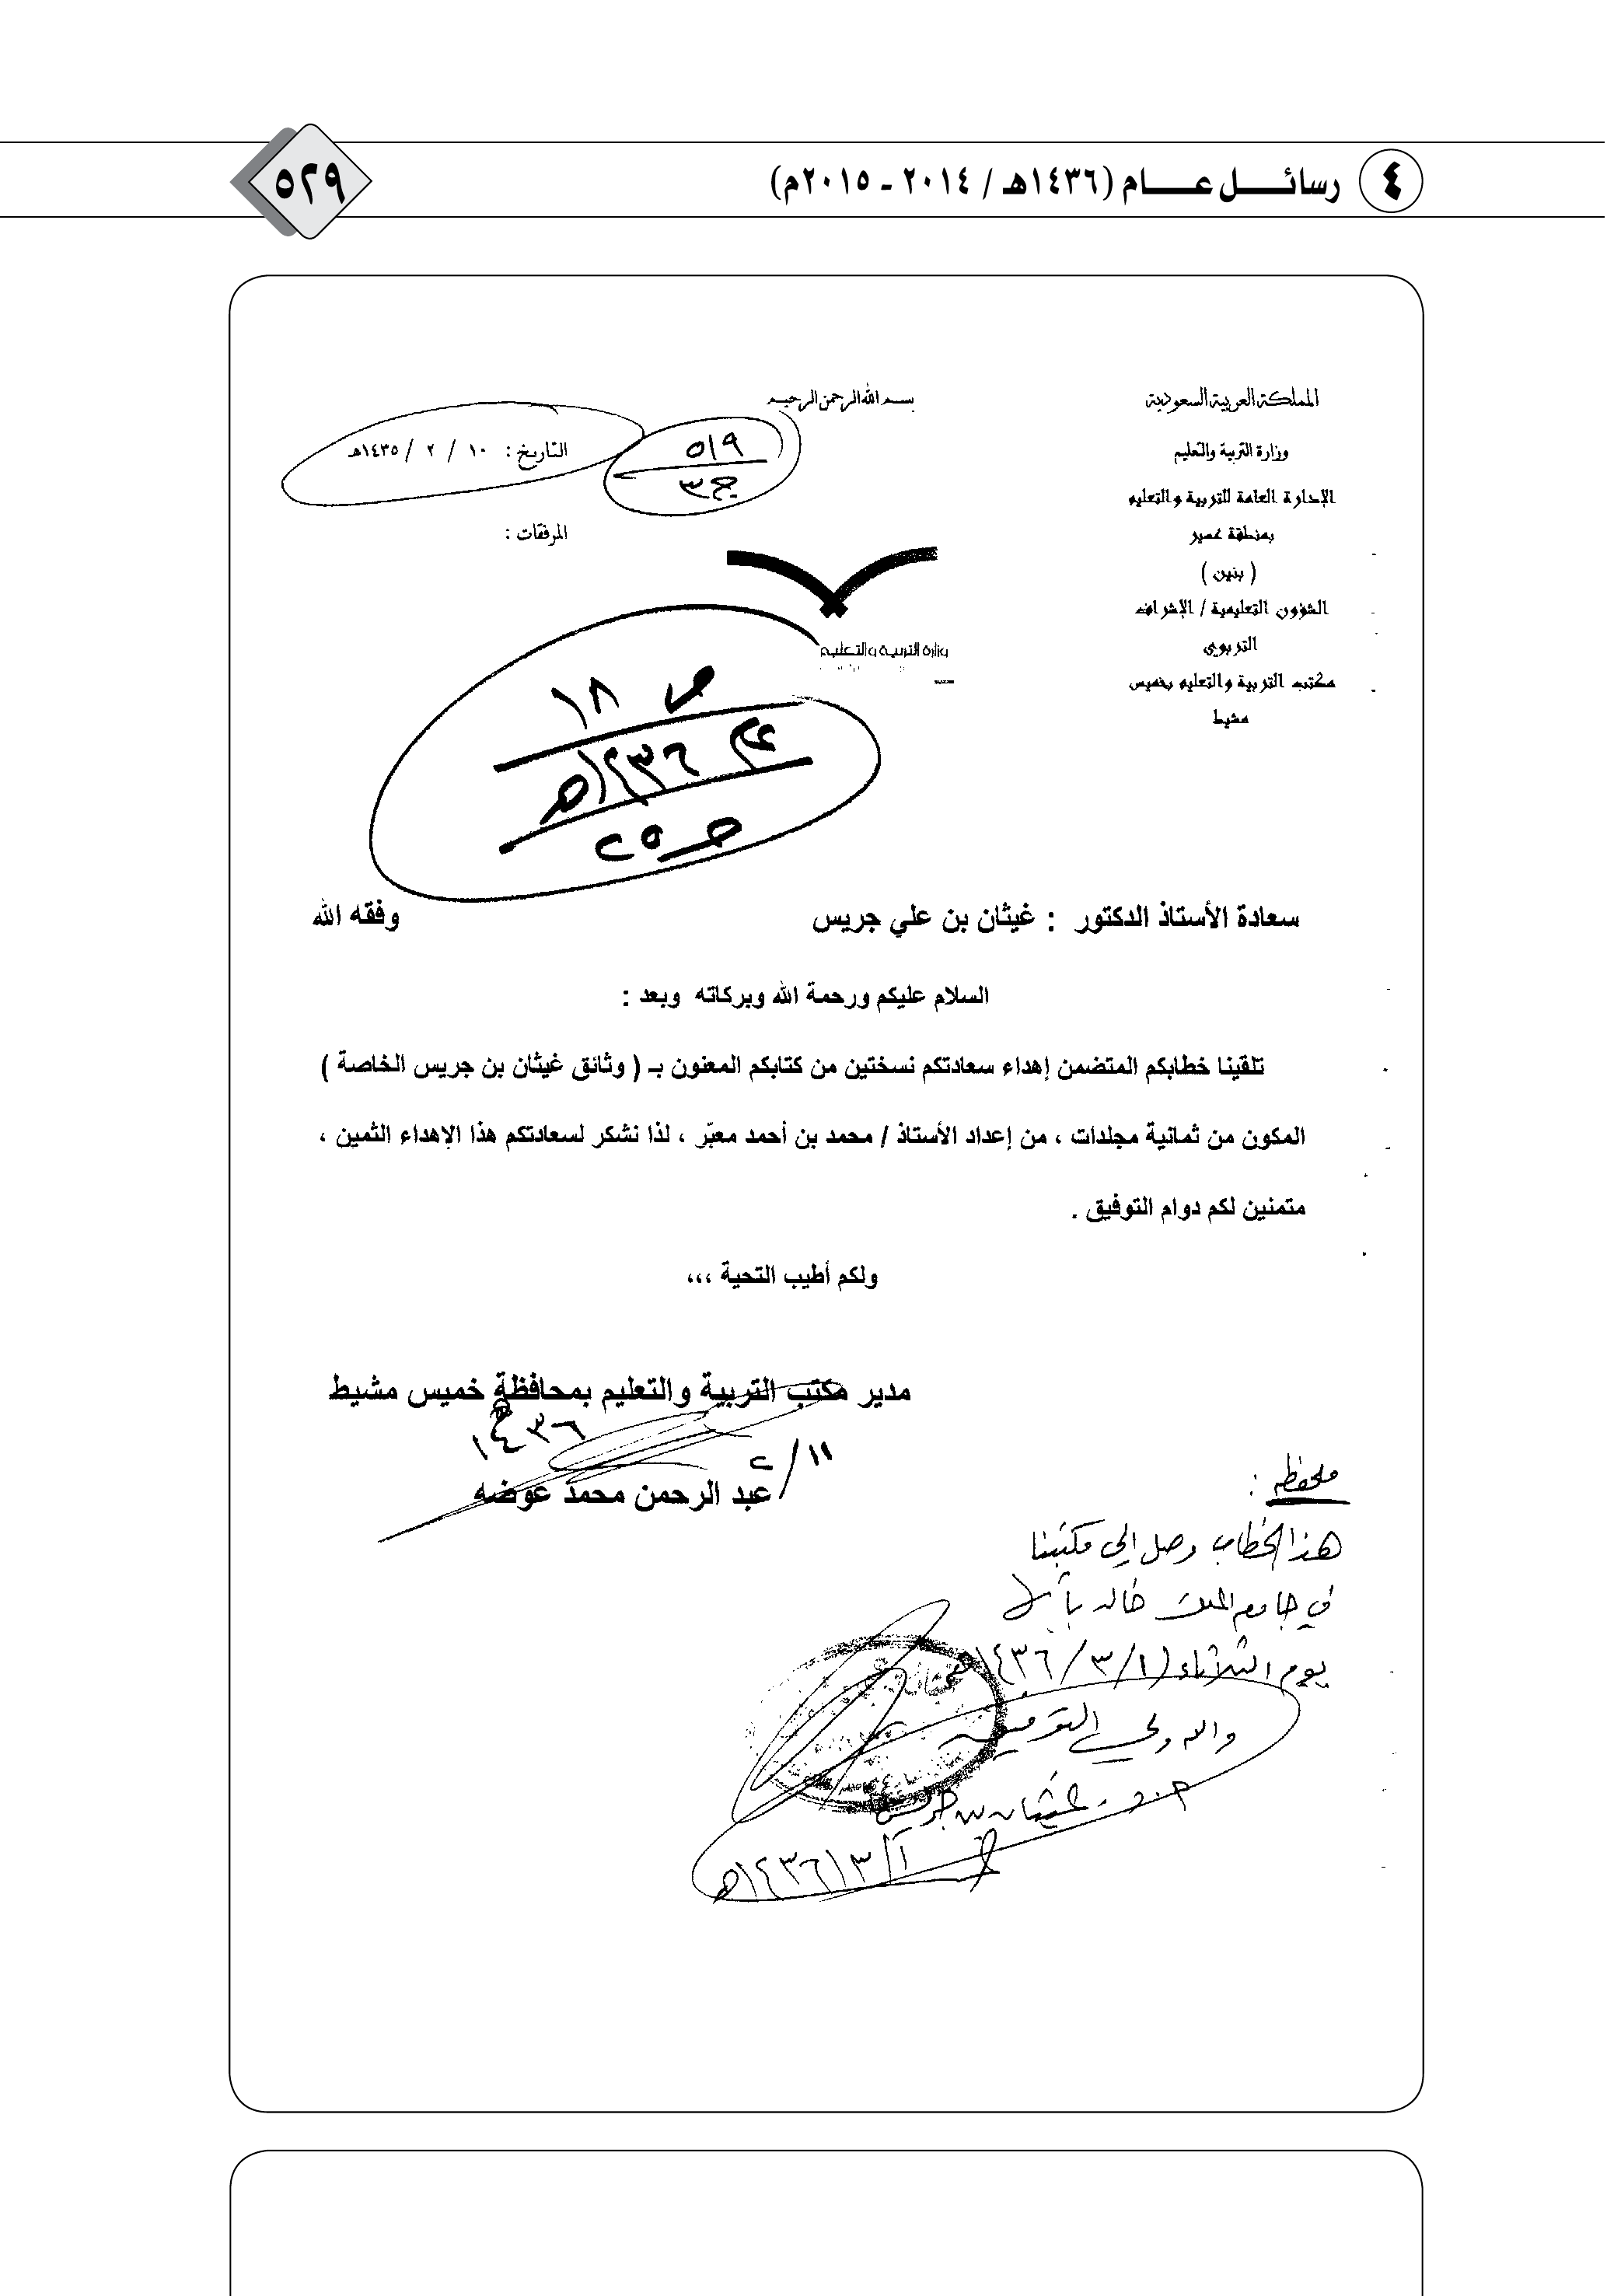 ٤ رسائل عام (١٤٣٦هـ / ٢٠١٤ - ٢٠١٥م)
٥٢٩
المملكة العربية السعودية
وزارة التربية والتعليم
الإدارة العامة للتربية والتعليم
بمنطقة عسير
( بنين )
الشؤون التعليمية / الإشراف
التربوي
مكتب التربية والتعليم بخميس
مشيط
بسم الله الرحمن الرحيم
٥١٩
ج٣
التاريخ : ١٠ / ٢ / ١٤٣٥هـ
المرفقات :
وزارة التربية والتعليم
ص ١٨
عام ١٤٣٦هـ
جـ ٢٥
سعادة الأستاذ الدكتور : غيثان بن علي جريس وفقه الله
السلام عليكم ورحمة الله وبركاته وبعد :
تلقينا خطابكم المتضمن إهداء سعادتكم نسختين من كتابكم المعنون بـ ( وثائق غيثان بن جريس الخاصة )
المكون من ثمانية مجلدات ، من إعداد الأستاذ / محمد بن أحمد معبّر ، لذا نشكر لسعادتكم هذا الإهداء الثمين ،
متمنين لكم دوام التوفيق .
ولكم أطيب التحية ،،،
مدير مكتب التربية والتعليم بمحافظة خميس مشيط
١١ / ٢ ١٤٣٦
عبد الرحمن محمد عوضه
ملحظه :
هذا الخطاب وصل إلى مكتبنا
في جامعة الملك خالد بأبها
يوم الثلاثاء (١/٣/١٤٣٦هـ
والله ولي التوفيق
أ.د. غيثان بن جريس
١/٣/١٤٣٦هـ